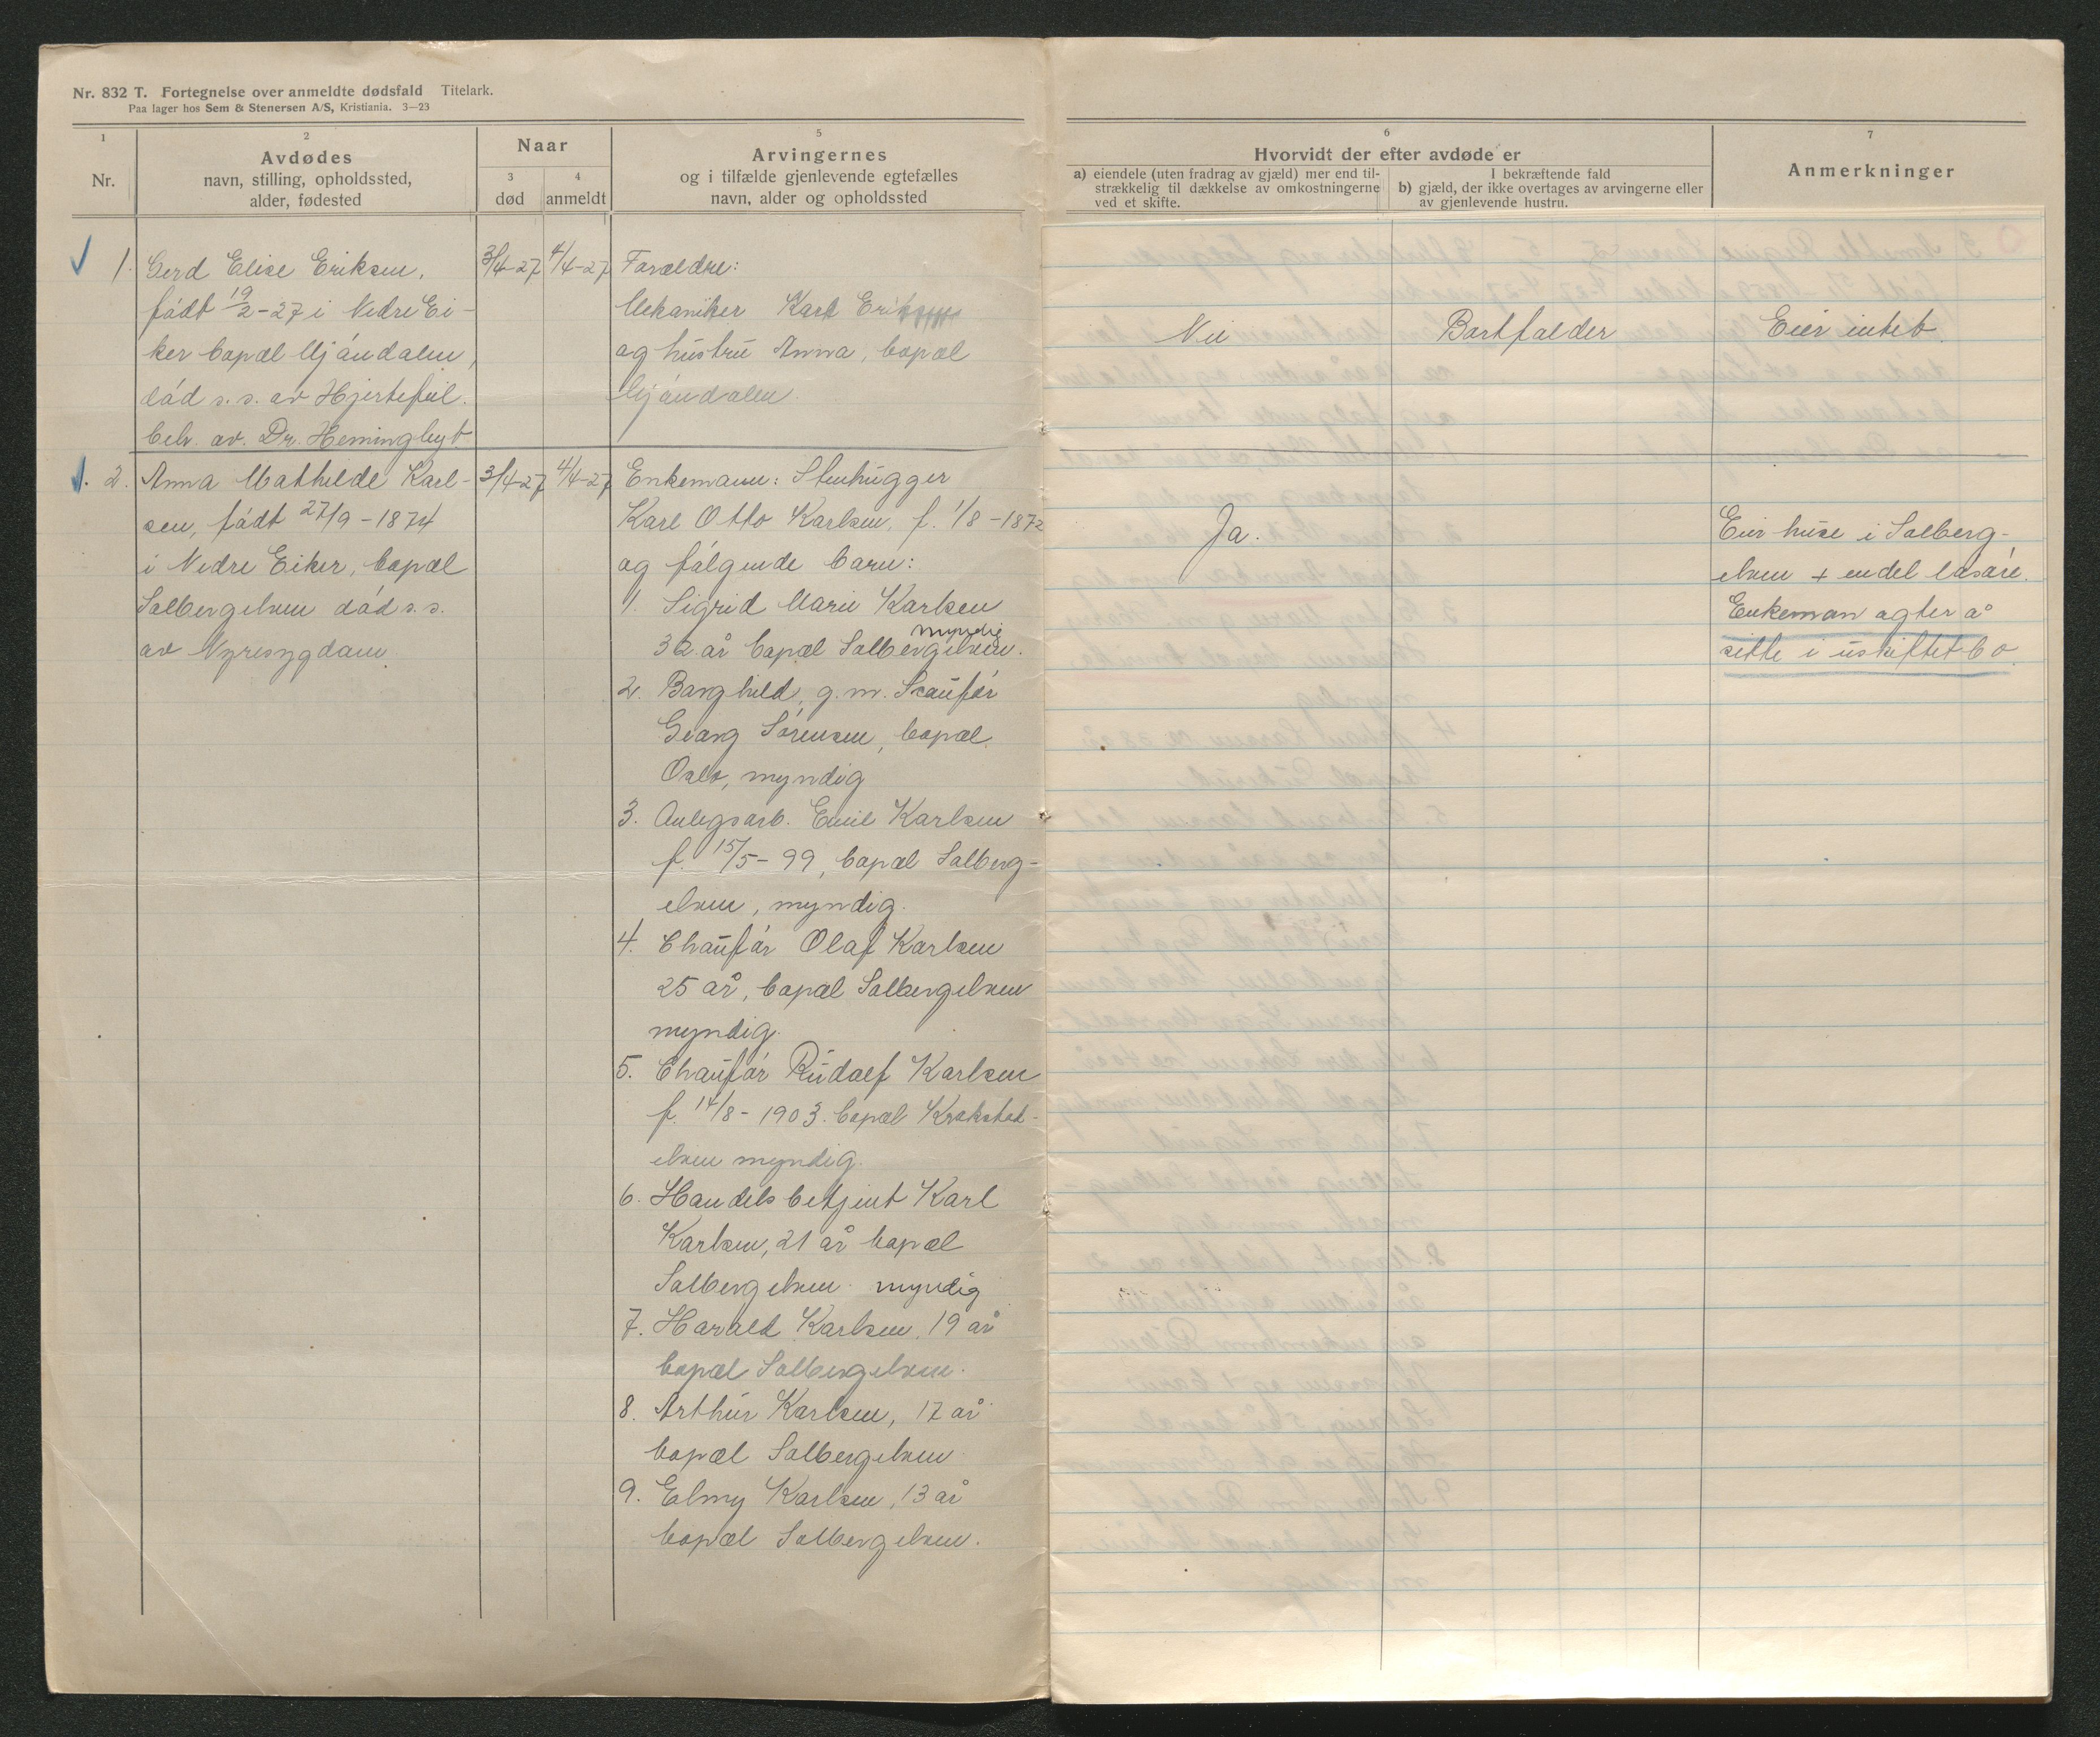 Nr. 832 T. Fortegnelse over anmeldte dødsfald Titelark.
Paa lager hos Sem & Stenersen A/S, Kristiania. 3—23
1
Nr.
2
Avdødes
navn, stilling, opholdssted,
alder, fødested
Naar
3
død
4
anmeldt
5
Arvingernes
og i tilfælde gjenlevende egtefælles
navn, alder og opholdssted
6
Hvorvidt der efter avdøde er
a) eiendele (uten fradrag av gjæld) mer end til-
strækkelig til dækkelse av omkostningerne
ved et skifte.
I bekræftende fald
b) gjæld, der ikke overtages av arvingerne eller
av gjenlevende hustru.
7
Anmerkninger
1. Gerd Elise Eriksen,
født 19/2-27 i Nedre Ei-
ker bopæl Mjøndalen,
død s. s. av Hjertefeil.
beh. av. Dr. Hemingbyt
3/4-27
4/4-27
Forældre:
Mekaniker Karl Eriksen
og hustru Anna, bopæl
Mjøndalen
Nei
Bortfalder
Eier intet.
2. Anna Mathilde Karl-
sen, født 27/9-1874
i Nedre Eiker, bopæl
Solbergelven død s. s.
av Nyresygdom
3/4-27
4/4-27
Enkemann: Stenhugger
Karl Otto Karlsen, f. 1/8-1872
og følgende barn:
1. Sigrid Marie Karlsen
32 år bopæl Solbergelven. myndig
2. Borghild, g. m. Scaufør
Georg Sørensen, bopæl
Oslo, myndig
3. Anlegsarb. Emil Karlsen
f. 15/5-99, bopæl Solberg-
elven, myndig.
4. Chaufør Olaf Karlsen
25 år, bopæl Solbergelven
myndig.
5. Chaufør Rudolf Karlsen
f. 14/8-1903. bopæl Krokstad-
elven myndig.
6. Handelsbetjent Karl
Karlsen, 21 år bopæl
Solbergelven myndig
7. Harald Karlsen, 19 år
bopæl Solbergelven.
8. Arthur Karlsen, 17 år
bopæl Solbergelven
9. Elmy Karlsen, 13 år
bopæl Solbergelven.
Ja.
Eier huse i Solberg-
elven + endel løsøre.
Enkeman agter å
sitte i uskiftet bo